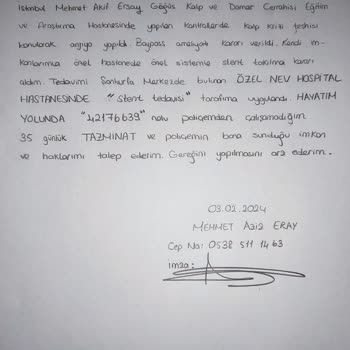 İstanbul Mehmet Akif Ersoy Göğüs Kalp ve Damar Cerrahisi Eğitim
ve Araştırma Hastanesinde yapılan kontrollerde kalp krizi teşhisi
konularak anjiyo yapıldı. Baypass ameliyatı kararı verildi. Kendi im-
kanlarımla özel hastanede özel sistemle stent takılma kararı
aldım. Tedavimi Şanlıurfa Merkezde bulunan ÖZEL NEV HOSPITAL
HASTANESİNDE "stent tedavisi" tarafıma uygulandı. HAYATIM
YOLUNDA "42176639" nolu poliçemden çalışamadığım
35 günlük TAZMİNAT ve poliçemin bana sunduğu imkan
ve haklarımı talep ederim. Gereğini yapılmasını arz ederim.
03.02.2024
MEHMET Aziz ERAY
Cep No: 0538 511 1463
imza: